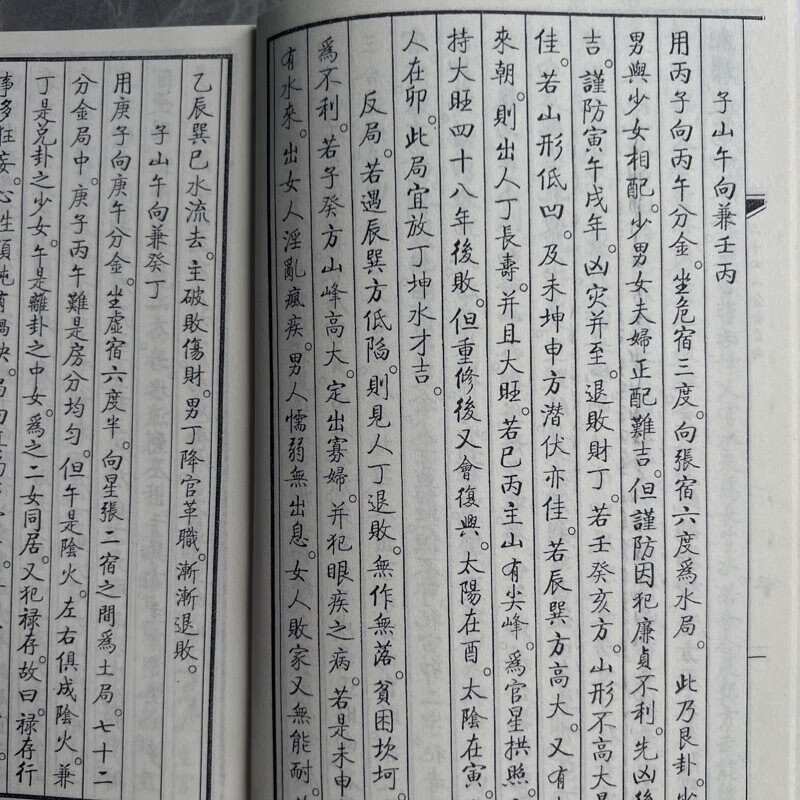 子山午向兼壬丙
用丙子向丙午分金。坐危宿三度。向張宿六度為水局。此乃艮卦。少
男與少女相配。少男女夫婦正配難吉。但謹防因犯廉貞不利。先凶後
吉。謹防寅午戌年。凶灾并至。退敗財丁。若壬癸亥方。山形不高大是
佳。若山形低凹。及未坤申方潛伏亦佳。若辰巽方高大。又有
來朝。則出人丁長壽。并且大旺。若巳丙主山有尖峰。為官星拱照。
持大旺四十八年後敗。但重修後又會復興。太陽在酉。太陰在寅。
人在卯。此局宜放丁坤水才吉。
反局。若遇辰巽方低陷。則見人丁退敗。無作無落。貧困坎坷。
為不利。若子癸方山峰高大。定出寡婦。并犯眼疾之病。若是未申
有水來。出女人淫亂瘋疾。男人懦弱無出息。女人敗家又無能耐。
乙辰巽巳水流去。主破敗傷財。男丁降官革職。漸漸退敗。
子山午向兼癸丁
用庚子向庚午分金。坐虛宿六度半。向星張二宿之間為土局。七十二
分金局中。庚子丙午難是房分均勻。但午是陰火。左右俱成陰火。兼
丁是兌卦之少女。午是離卦之中女。為之二女同居。又犯禄存。故曰。禄存行
事多狂妄。心生頑鈍